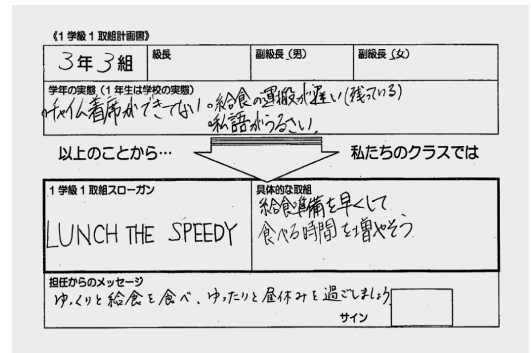 《1学級1取組計画書》
3年3組 級長 副級長(男) 副級長(女)
学年の実態(1年生は学校の実態)
・チャイム着席ができてない ・給食の運搬が遅い(残っている)
・私語がうるさい.
以上のことから… 私たちのクラスでは
1学級1取組スローガン
LUNCH THE SPEEDY
具体的な取組
給食準備を早くして
食べる時間を増やそう
担任からのメッセージ
ゆっくりと給食を食べ、ゆったりと昼休みを過ごしましょう
サイン